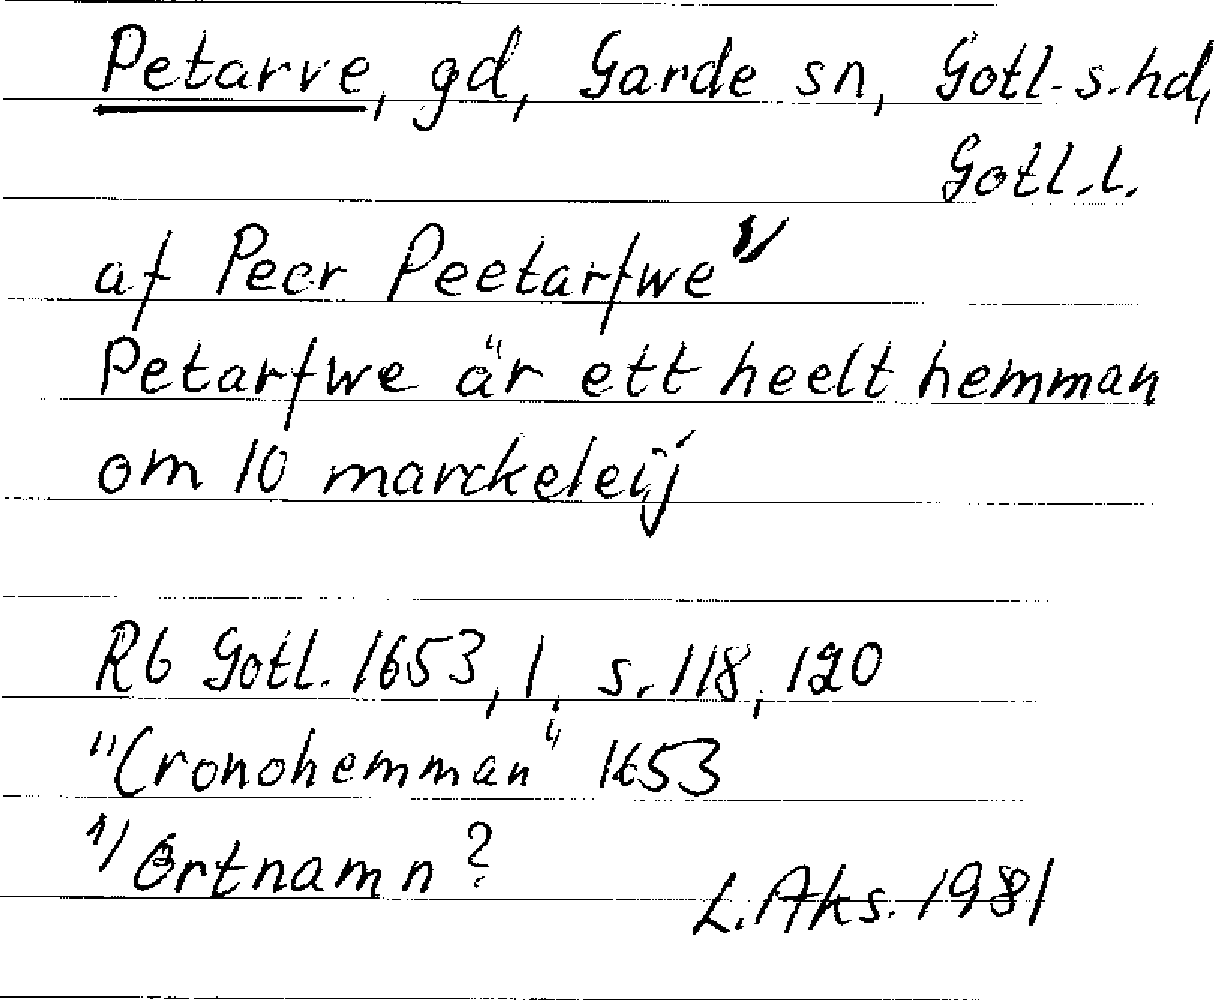 Petarve, gd, Garde sn, Gotl. s. hd,
Gotl. l.
af Peer Peetarfwe 1)
Petarfwe är ett heelt hemman
om 10 marckeleij
Rb Gotl. 1653, 1, s. 118, 120
"Cronohemman" 1653
1) Ortnamn?
L. Aks. 1981